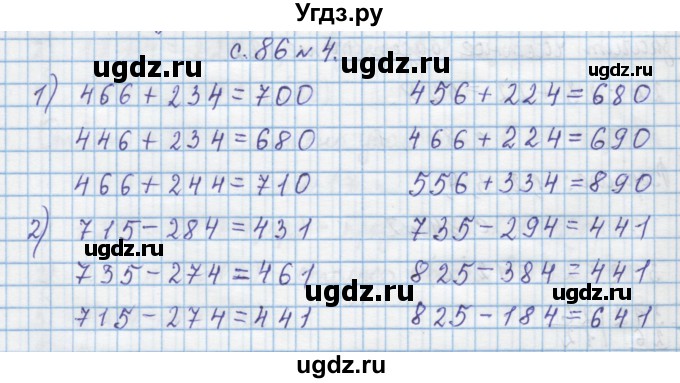 Угдз.ру
с. 86 № 4.
ugdz.ru ugdz.ru
1) 466 + 234 = 700 456 + 224 = 680
446 + 234 = 680 466 + 224 = 690
ugdz.ru ugdz.ru
466 + 244 = 710 556 + 334 = 890
2) 715 - 284 = 431 735 - 294 = 441
ugdz.ru
735 - 274 = 461 825 - 384 = 441
ugdz.ru ugdz.ru
715 - 274 = 441 825 - 184 = 641
ugdz.ru